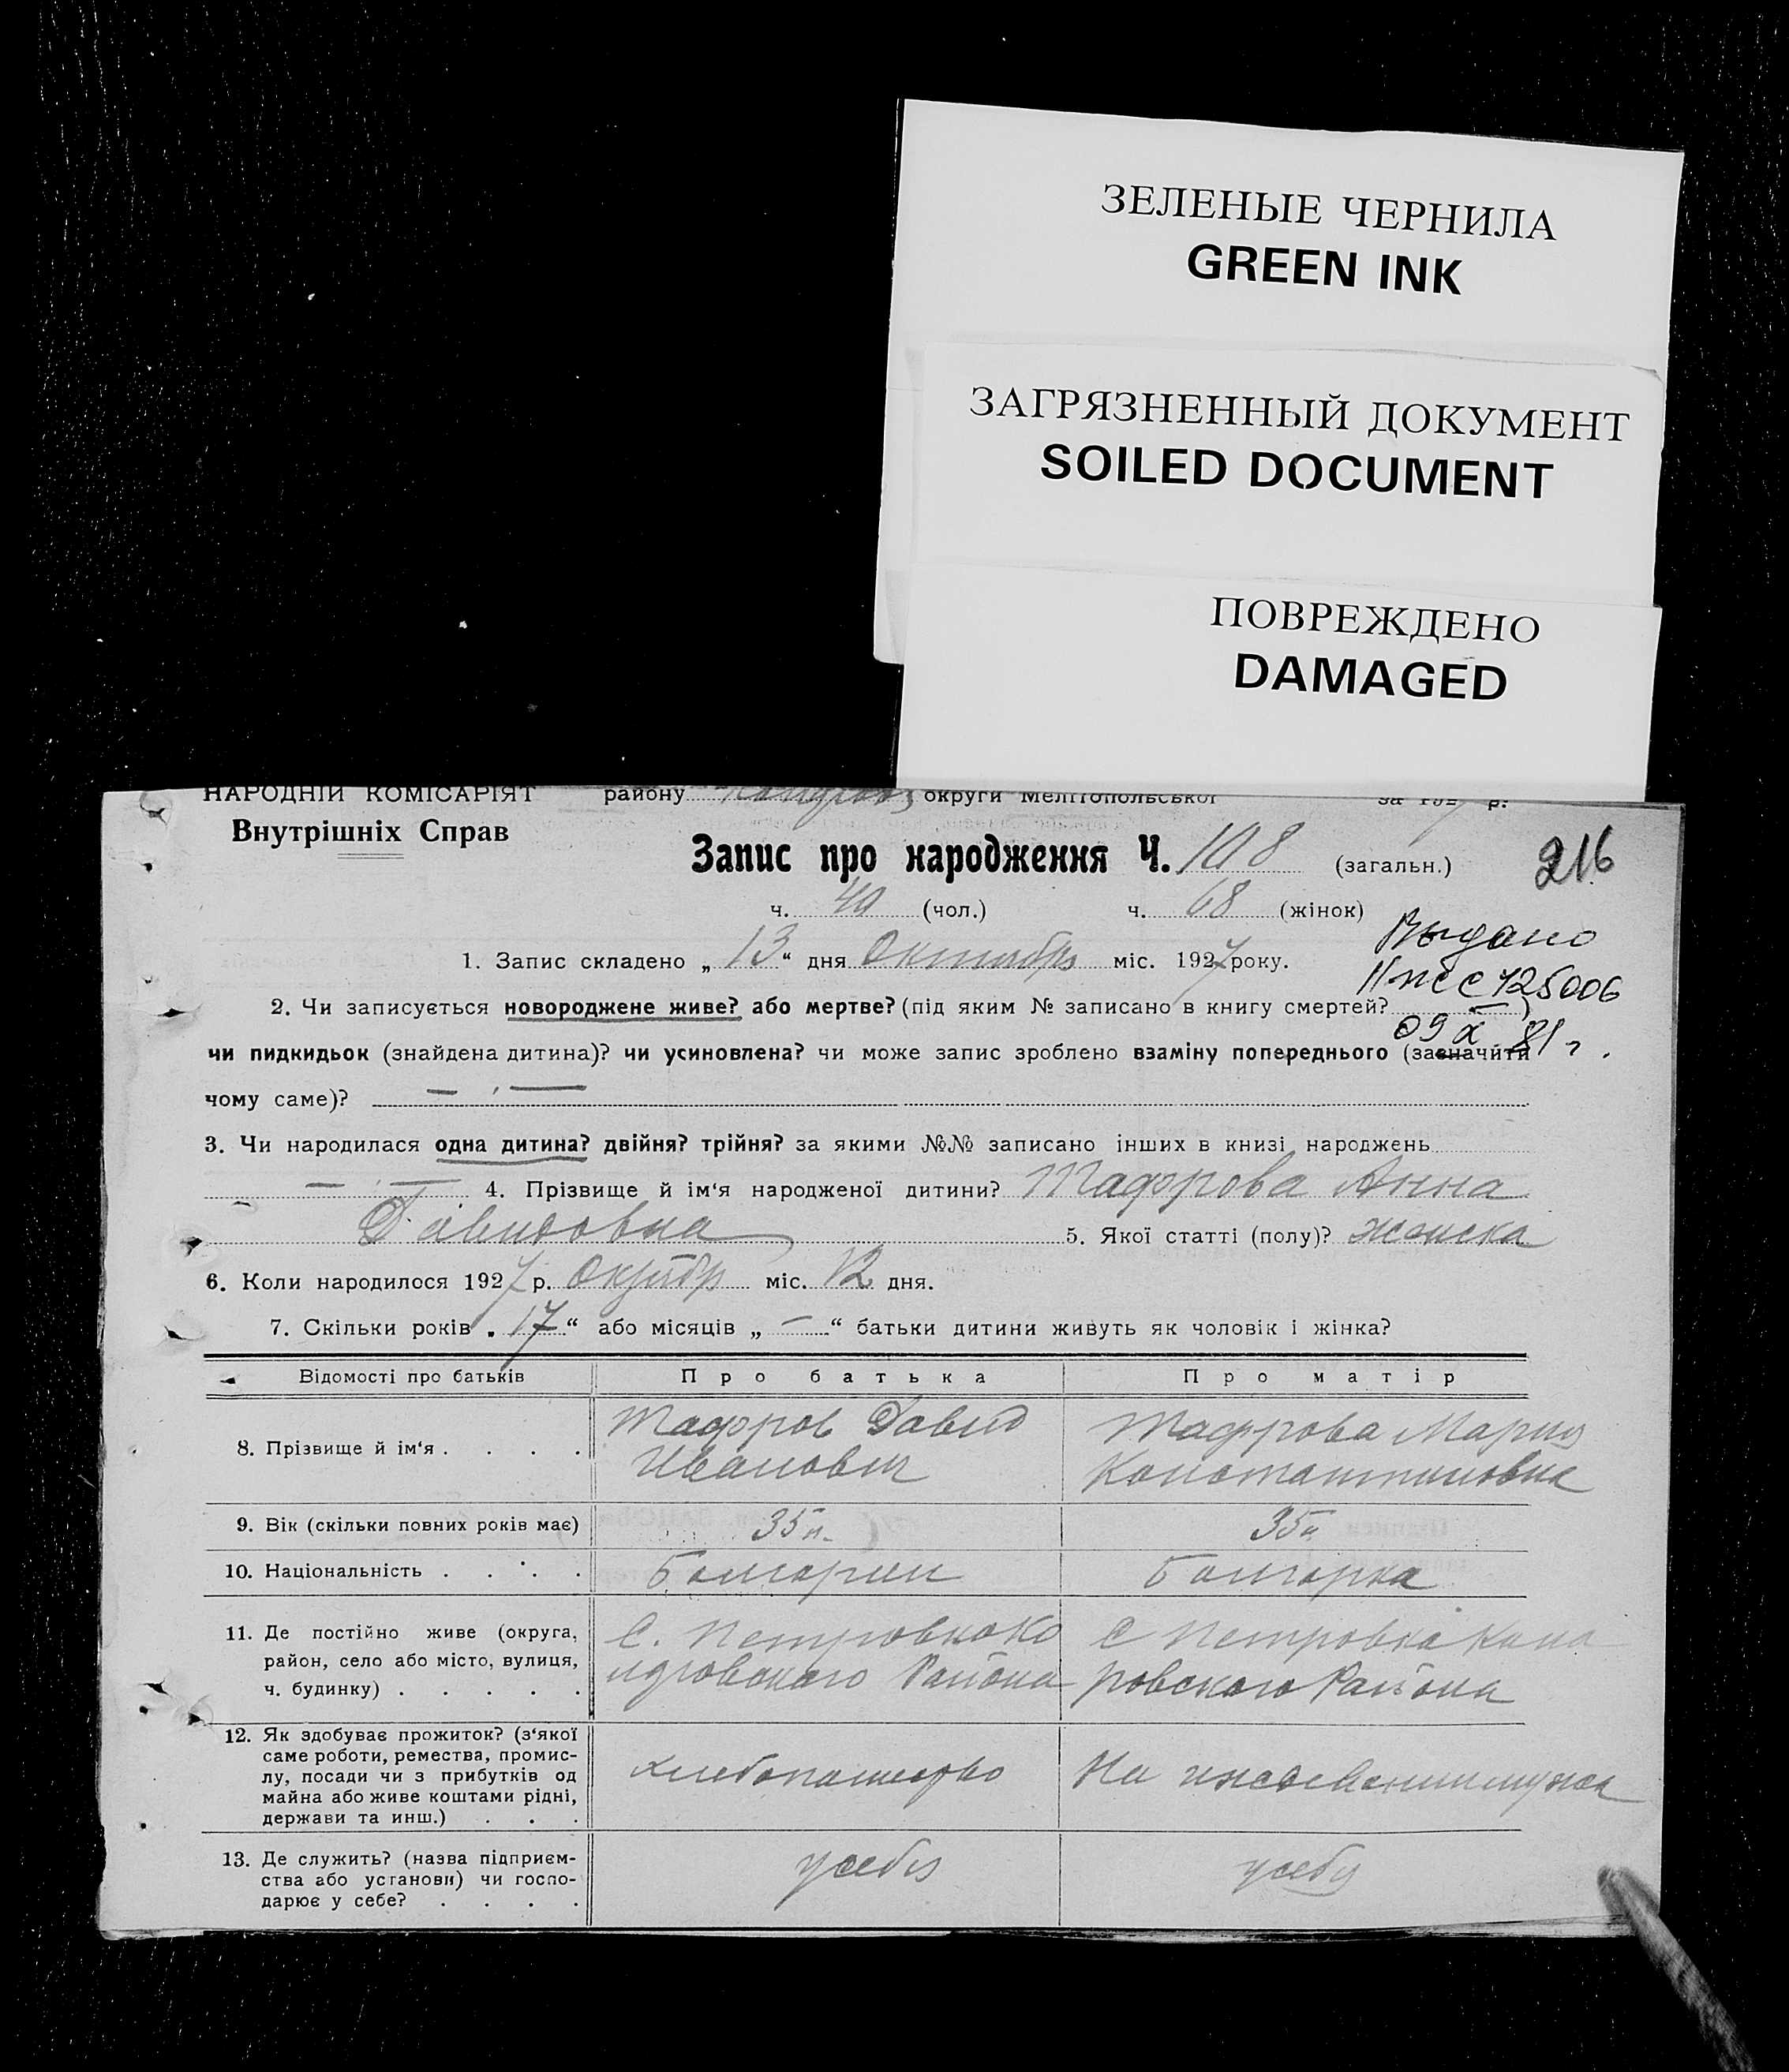 ЗЕЛЕНЫЕ ЧЕРНИЛА
GREEN INK
ЗАГРЯЗНЕННЫЙ ДОКУМЕНТ
SOILED DOCUMENT
ПОВРЕЖДЕНО
DAMAGED
НАРОДНІЙ КОМІСАРІЯТ району округи Мелітопольської за 1927 р.
Внутрішніх Справ
Запис про народження Ч. 108 (загальн.) 216
ч. 40 (чол.) ч. 68 (жінок)
Выдано
1. Запис складено „13“ дня Октября міс. 1927 року.
725006
2. Чи записується новороджене живе? або мертве? (під яким № записано в книгу смертей? — )
09 X 81 г.
чи пидкидьок (знайдена дитина)? чи усиновлена? чи може запис зроблено взаміну попереднього (зазначити
чому саме)? — . —
3. Чи народилася одна дитина? двійня? трійня? за якими №№ записано інших в книзі народжень
— . — 4. Прізвище й ім‘я народженої дитини? Тафрова Анна
Давидовна 5. Якої статті (полу)? женска
6. Коли народилося 1927 р. Октябр міс. 12 дня.
7. Скільки років „17“ або місяців „—“ батьки дитини живуть як чоловік і жінка?
Відомості про батьків Про батька Про матір
8. Прізвище й ім‘я . . . . Тафров Давид Иванович Тафрова Мария Константиновна
9. Вік (скільки повних років має) 35 л. 35 л
10. Національність . . . . Болгарин Болгарка
11. Де постійно живе (округа, район, село або місто, вулиця, ч. будинку) . . . . . С. Петровка Района С Петровка Района
12. Як здобуває прожиток? (з‘якої саме роботи, ремества, промислу, посади чи з прибутків од майна або живе коштами рідні, держави та инш.) . . . хлебопашество На иждевении мужа
13. Де служить? (назва підприємства або установи) чи господарює у себе? . . . . у себя у себя